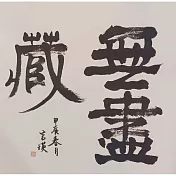 無盡
藏
甲辰春月